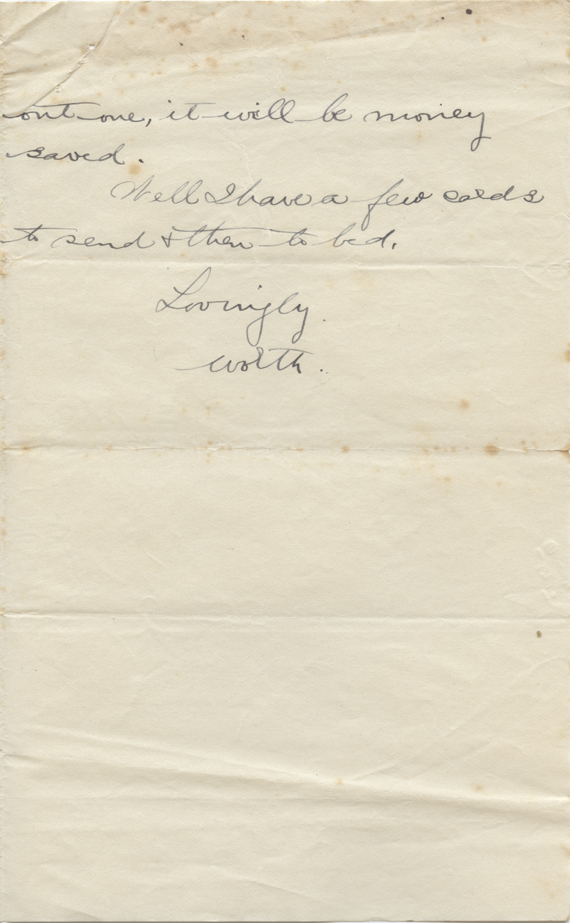 out one, it will be money
saved.
Well I have a few cards
to send & then to bed.
Lovingly.
Worth.